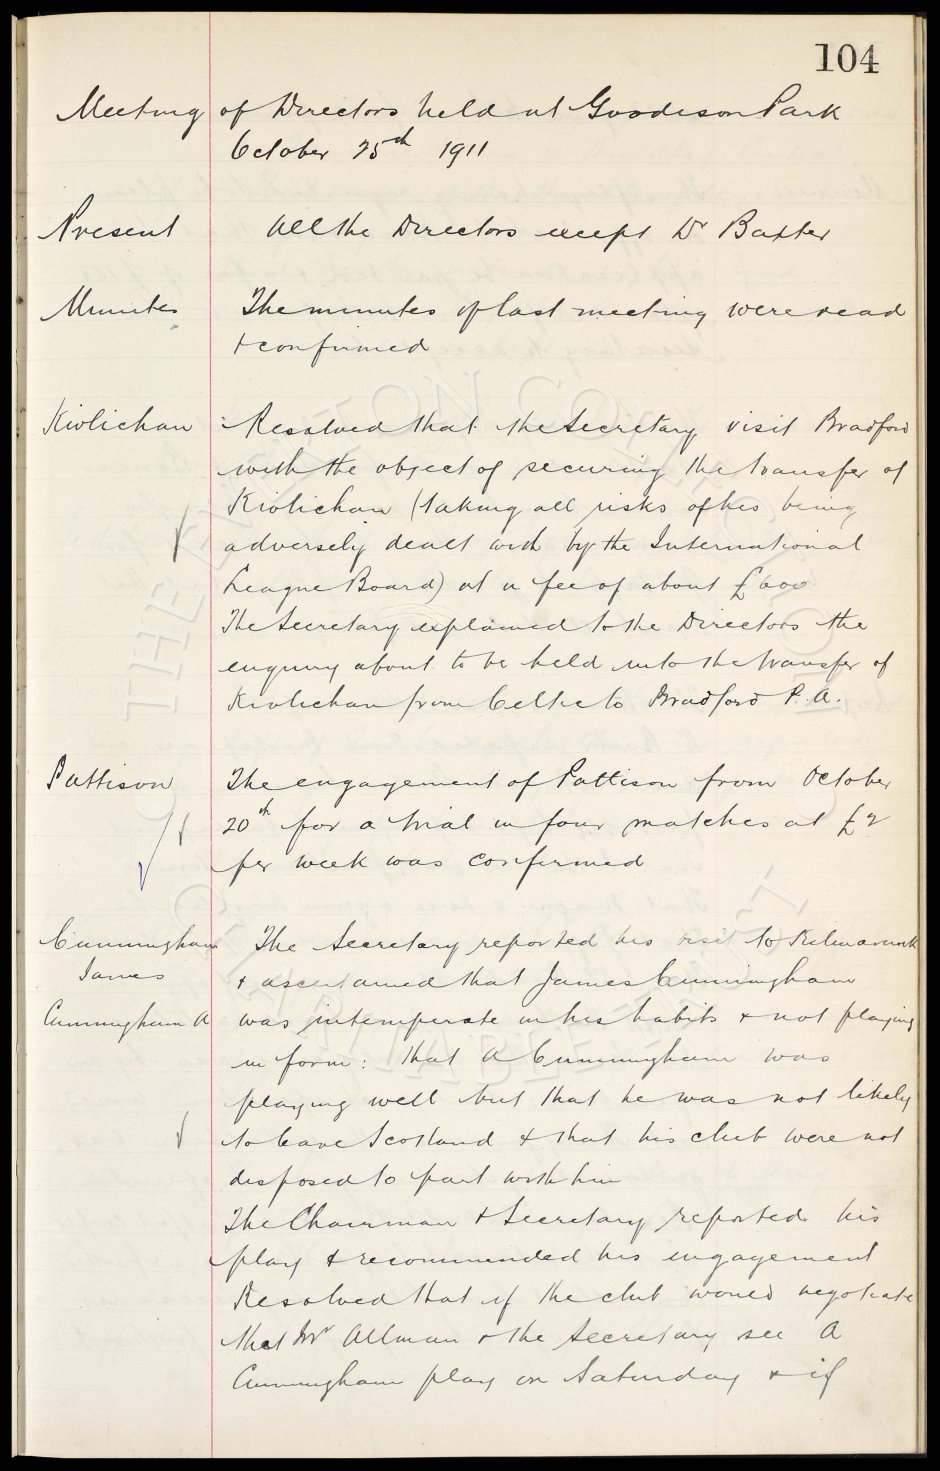 104
Meeting of Directors held at Goodison Park
October 25th 1911
Present All the Directors except Dr Baxter
Minutes The minutes of last meeting were read
+ confirmed
Kivlichan Resolved that the Secretary visit Bradford
with the object of securing the transfer of
Kivlichan (taking all risks of his being
adversely dealt with by the International
League Board) at a fee of about £600
The Secretary explained to the Directors the
enquiry about to be held into the transfer of
Kivlichan from Celtic to Bradford P.A.
Pattison The engagement of Pattison from October
20th for a trial in four matches at £2
per week was confirmed
Cunningham The Secretary reported his visit to Kilmarnock
James + ascertained that James Cunningham
Cunningham A was intemperate in his habits + not playing
in form: that A Cunningham was
playing well but that he was not likely
to leave Scotland + that his club were not
disposed to part with him
The Chairman + Secretary reported his
play + recommended his engagement
Resolved that if the club would negotiate
that Mr Allman + the Secretary see A
Cunningham play on Saturday + if